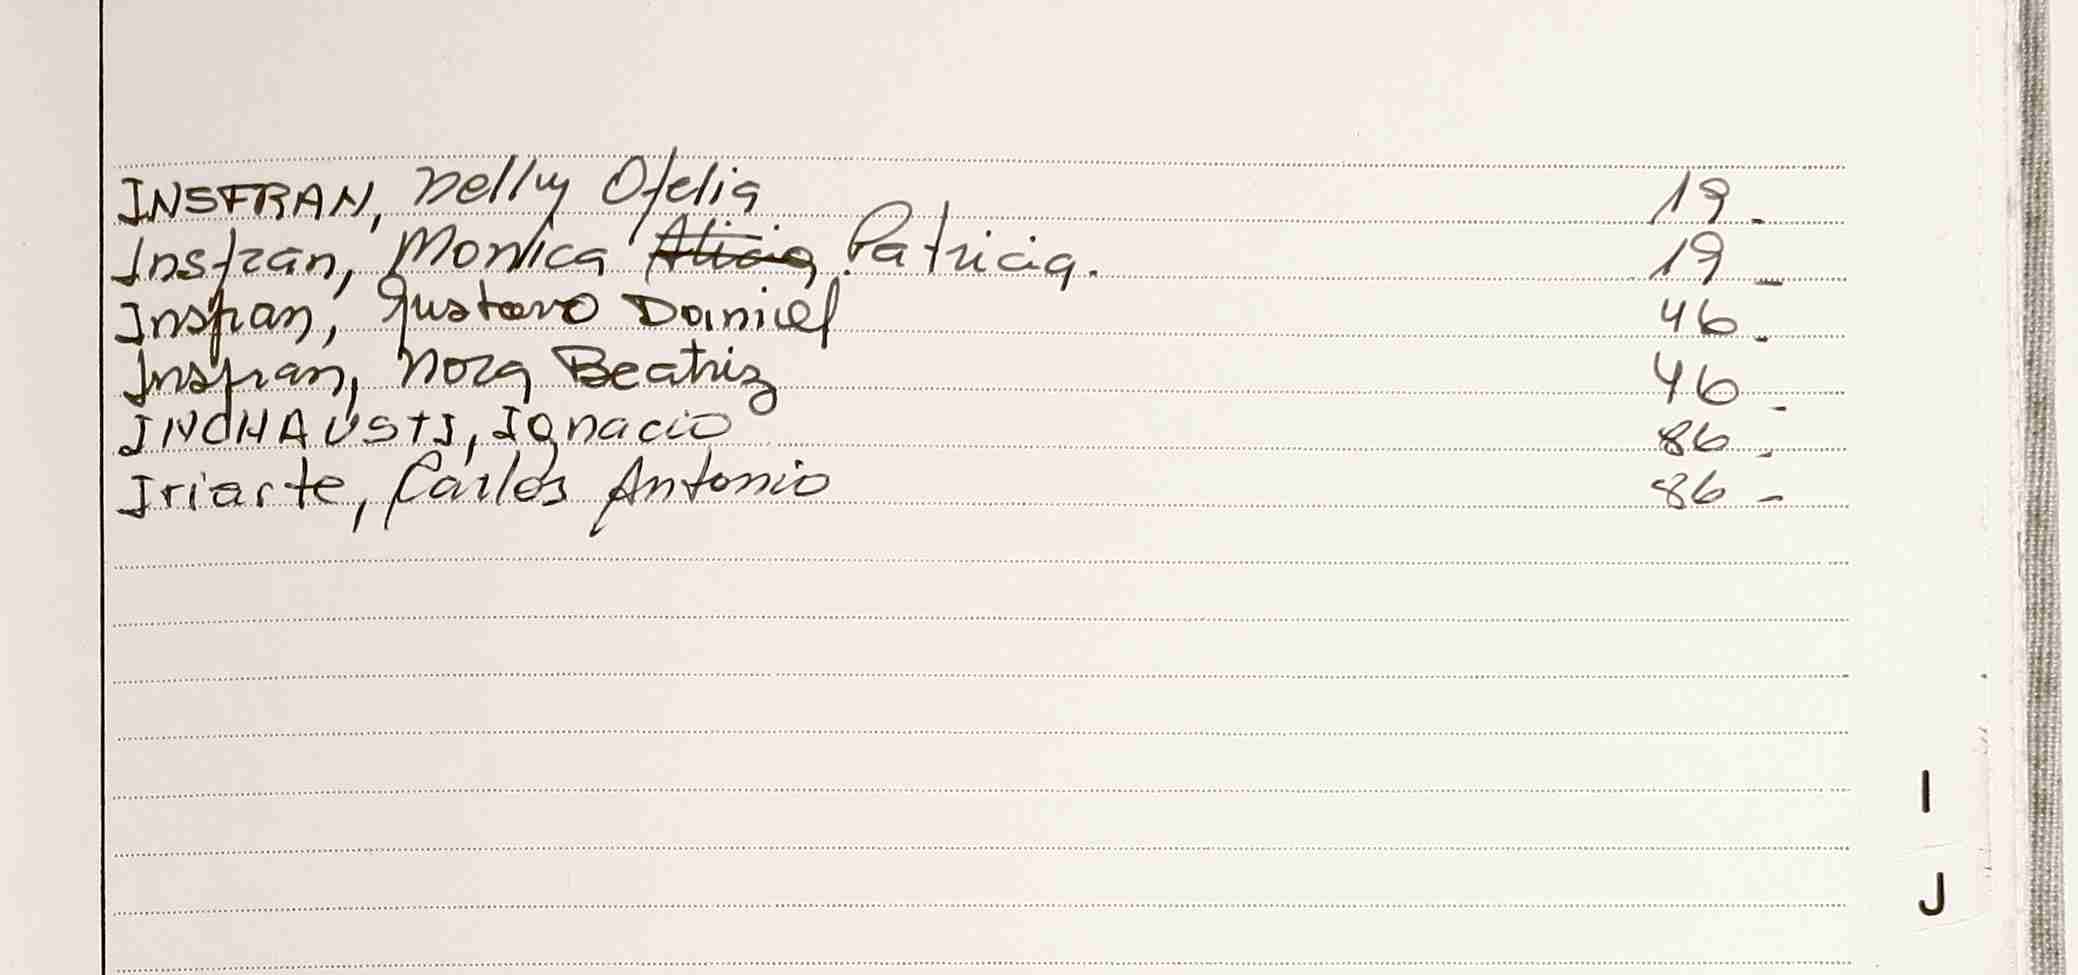 INSFRAN, Nelly Ofelia 19.
Insfran, Monica Alicia Patricia. 19_
Insfran, Gustavo Daniel 46.
Insfran, Nora Beatriz 46_
INCHAUSTI, Ignacio 86.
Iriarte, Carlos Antonio 86-
I
J